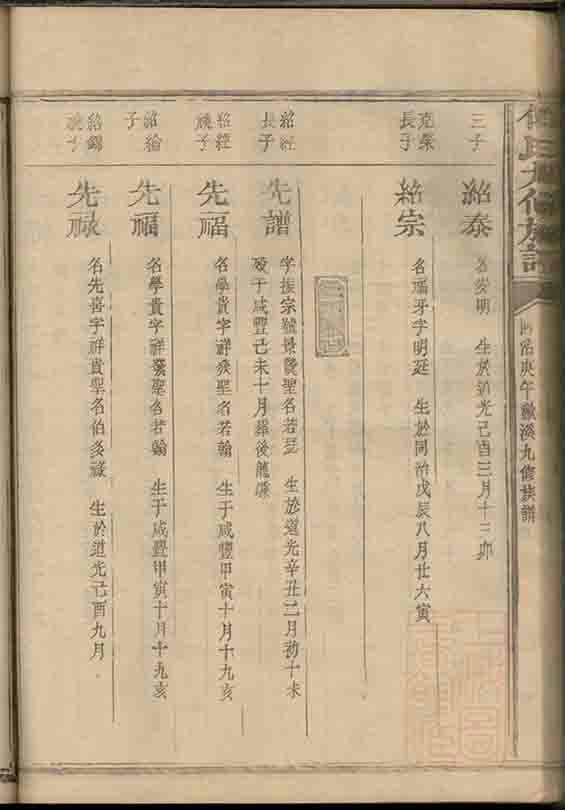 氏九修族譜
同治庚午歙溪九修族譜
三子
紹泰
名安明 生於道光己酉三月十三卯
克榮長子
紹宗
名福牙字明廷 生於同治戊辰八月廿六寅
紹經長子
先譜
字振宗號景賢聖名若瑟 生於道光辛丑二月初十未
歿于咸豐己未十月
紹經晚子
先福
名學貴字祥發聖名若翰 生于咸豐甲寅十月十九亥
紹繪子
先福
名學貴字祥發聖名若翰 生于咸豐甲寅十月十九亥
紹錦晚子
先祿
名先喜字祥貴聖名伯多祿 生於道光己酉九月